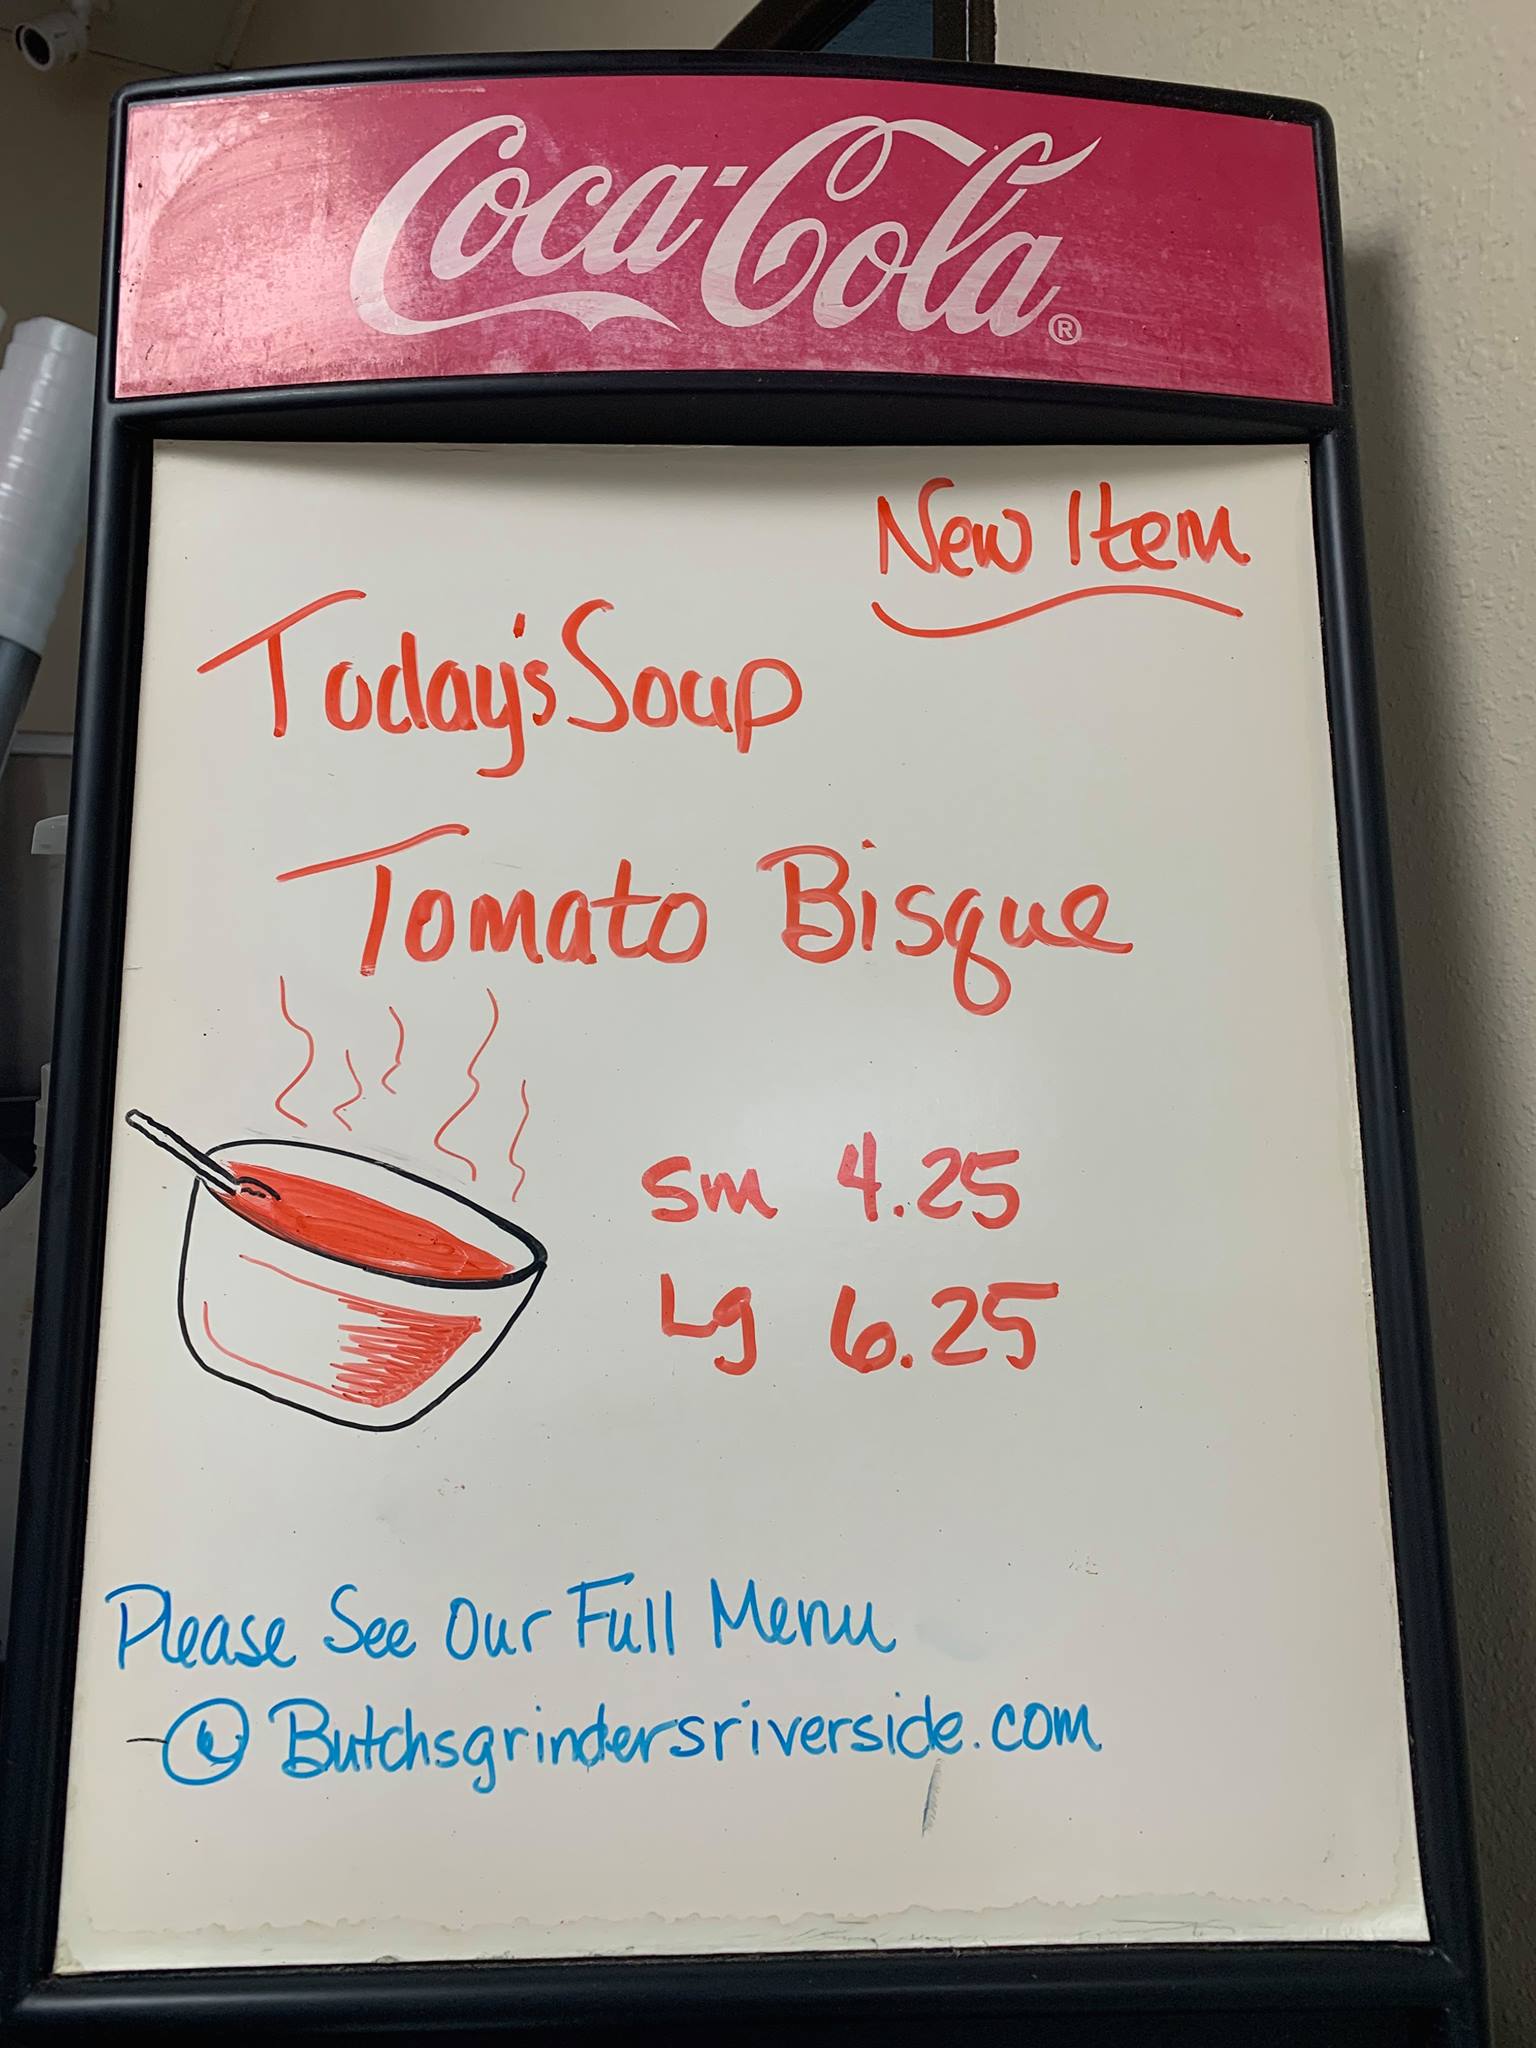 Coca-Cola®
New Item
Today's Soup
Tomato Bisque
sm 4.25
Lg 6.25
Please See Our Full Menu
@ Butchsgrindersriverside.com